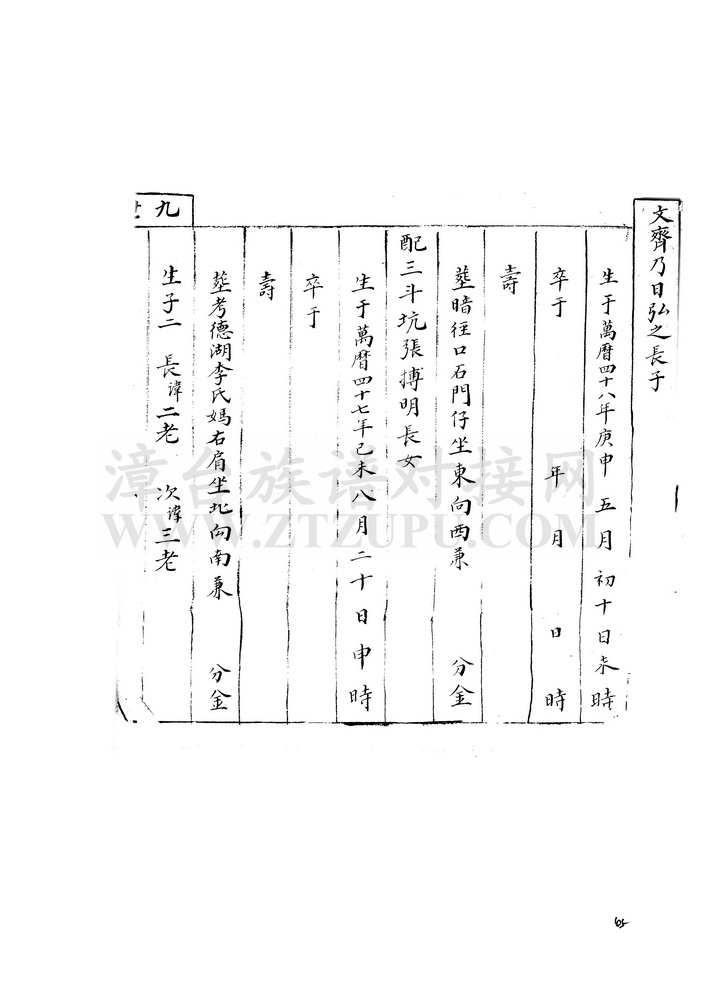 文齋乃日弘之長子
生于萬曆四十八年庚申 五月 初十日未時
卒于 年 月 日 時
壽
塟暗徑口石門仔坐東向西兼 分金
配三斗坑張摶明長女
生于萬曆四十七年己未八月二十日申時
卒于
壽
塟考德湖李氏媽右肩坐北向南兼 分金
生子二 長諱二老 次諱三老
九世
漳台族谱对接网
WWW.ZTZUPU.COM
65